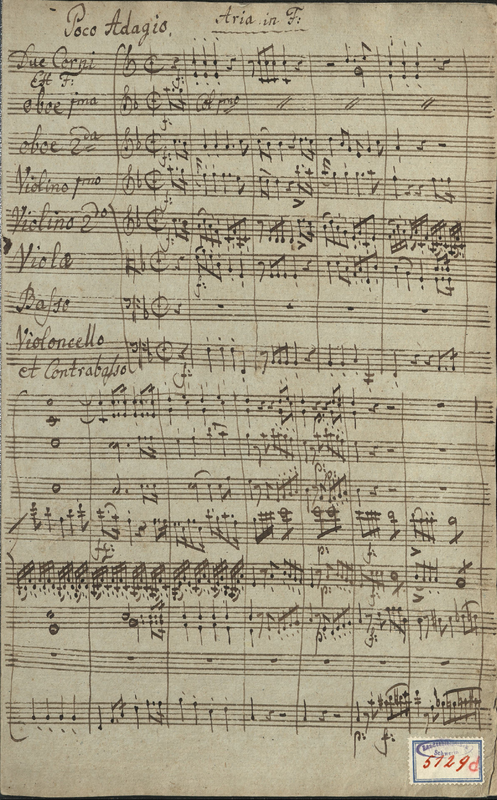 Poco Adagio.
Aria in F:
Due Corni
Ex F:
oboe pma
Col pmo
oboe 2da
Violino pmo
Violino 2do
Violæ
Basso
Violoncello
et Contrabasso
ff:
p: f:
p: f:
p: f:
5129d